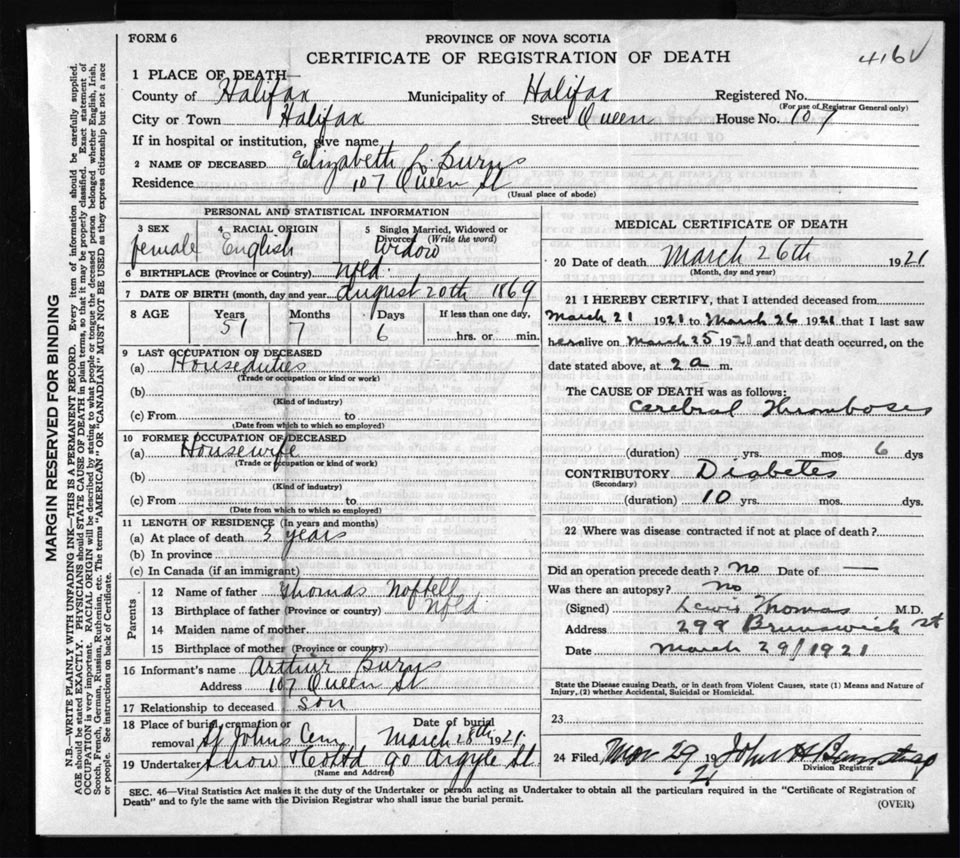 FORM 6
PROVINCE OF NOVA SCOTIA
CERTIFICATE OF REGISTRATION OF DEATH
416
1 PLACE OF DEATH—
County of Halifax Municipality of Halifax Registered No.
(For use of Registrar General only)
City or Town Halifax Street Queen House No. 107
If in hospital or institution, give name
2 NAME OF DECEASED Elizabeth L. Burns
Residence 107 Queen St
(Usual place of abode)
PERSONAL AND STATISTICAL INFORMATION
3 SEX 4 RACIAL ORIGIN 5 Single, Married, Widowed or Divorced (Write the word)
female English Widow
6 BIRTHPLACE (Province or Country) Nfld.
7 DATE OF BIRTH (month, day and year) August 20th 1869
8 AGE Years Months Days If less than one day,
51 7 6 hrs. or min.
9 LAST OCCUPATION OF DECEASED
(a) Houseduties
(Trade or occupation or kind or work)
(b)
(Kind of industry)
(c) From to
(Date from which to which so employed)
10 FORMER OCCUPATION OF DECEASED
(a) Housewife
(Trade or occupation or kind or work)
(b)
(Kind of industry)
(c) From to
(Date from which to which so employed)
11 LENGTH OF RESIDENCE (In years and months)
(a) At place of death 3 years
(b) In province
(c) In Canada (if an immigrant)
Parents
12 Name of father Thomas Noftell
13 Birthplace of father (Province or country) Nfld.
14 Maiden name of mother
15 Birthplace of mother (Province or country)
16 Informant's name Arthur Burns
Address 107 Queen St
17 Relationship to deceased son
18 Place of burial, cremation or removal St Johns Cem Date of burial March 28th 1921
19 Undertaker Snow & Co Ltd 90 Argyle St.
(Name and Address)
MEDICAL CERTIFICATE OF DEATH
20 Date of death March 26th 1921
(Month, day and year)
21 I HEREBY CERTIFY, that I attended deceased from
March 21 1921 to March 26 1921 that I last saw
her alive on March 25 1921 and that death occurred, on the
date stated above, at 2 a m.
The CAUSE OF DEATH was as follows:
Cerebral Thromboses
(duration) yrs. mos. 6 dys
CONTRIBUTORY Diabetes
(Secondary)
(duration) 10 yrs. mos. dys.
22 Where was disease contracted if not at place of death?
Did an operation precede death? No Date of —
Was there an autopsy? No
(Signed) Lewis Thomas M.D.
Address 299 Brunswick St
Date March 29/1921
State the Disease causing Death, or in death from Violent Causes, state (1) Means and Nature of
Injury, (2) whether Accidental, Suicidal or Homicidal.
23
24 Filed Mar 29 1921 John H
Division Registrar
SEC. 46—Vital Statistics Act makes it the duty of the Undertaker or person acting as Undertaker to obtain all the particulars required in the "Certificate of Registration of
Death" and to fyle the same with the Division Registrar who shall issue the burial permit.
(OVER)
MARGIN RESERVED FOR BINDING
N.B.—WRITE PLAINLY WITH UNFADING INK—THIS IS A PERMANENT RECORD. Every item of information should be carefully supplied.
AGE should be stated EXACTLY. PHYSICIANS should STATE CAUSE OF DEATH in plain terms, so that it may be properly classified. Exact statement of
OCCUPATION is very important. RACIAL ORIGIN will be described by stating to what people or tongue the deceased person belonged whether English, Irish,
Scotch, French, German, Russian, Ruthenian, etc. The terms "AMERICAN" OR "CANADIAN" MUST NOT BE USED as they express citizenship but not a race
or people. See instructions on back of Certificate.